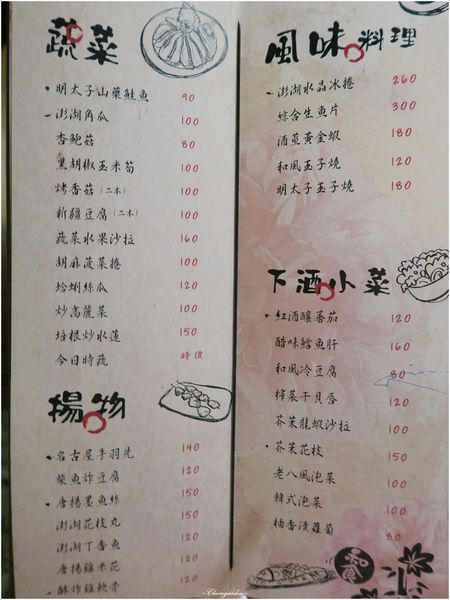 蔬菜
明太子山藥鮭魚 90
澎湖角瓜 100
杏鮑菇 80
黑胡椒玉米筍 100
烤香菇(二本) 100
新疆豆腐(二本) 100
蔬菜水果沙拉 160
胡麻菠菜捲 100
蛤蜊絲瓜 120
炒高麗菜 100
培根炒水蓮 150
今日時蔬 時價
揚物
名古屋手羽先 140
柴魚炸豆腐 120
唐揚墨魚絲 150
澎湖花枝丸 150
澎湖丁香魚 120
唐揚雞米花 120
酥炸雞軟骨 120
風味料理
澎湖水晶冰捲 260
綜合生魚片 300
酒蒸黃金蝦 180
和風玉子燒 120
明太子玉子燒 180
下酒小菜
紅酒釀蕃茄 120
醋味鱈魚肝 160
和風冷豆腐 80
榨菜干貝唇 120
芥茉龍蝦沙拉 100
芥茉花枝 150
老八風泡菜 100
韓式泡菜 100
柚香漬蘿蔔 80
~Churegarden~